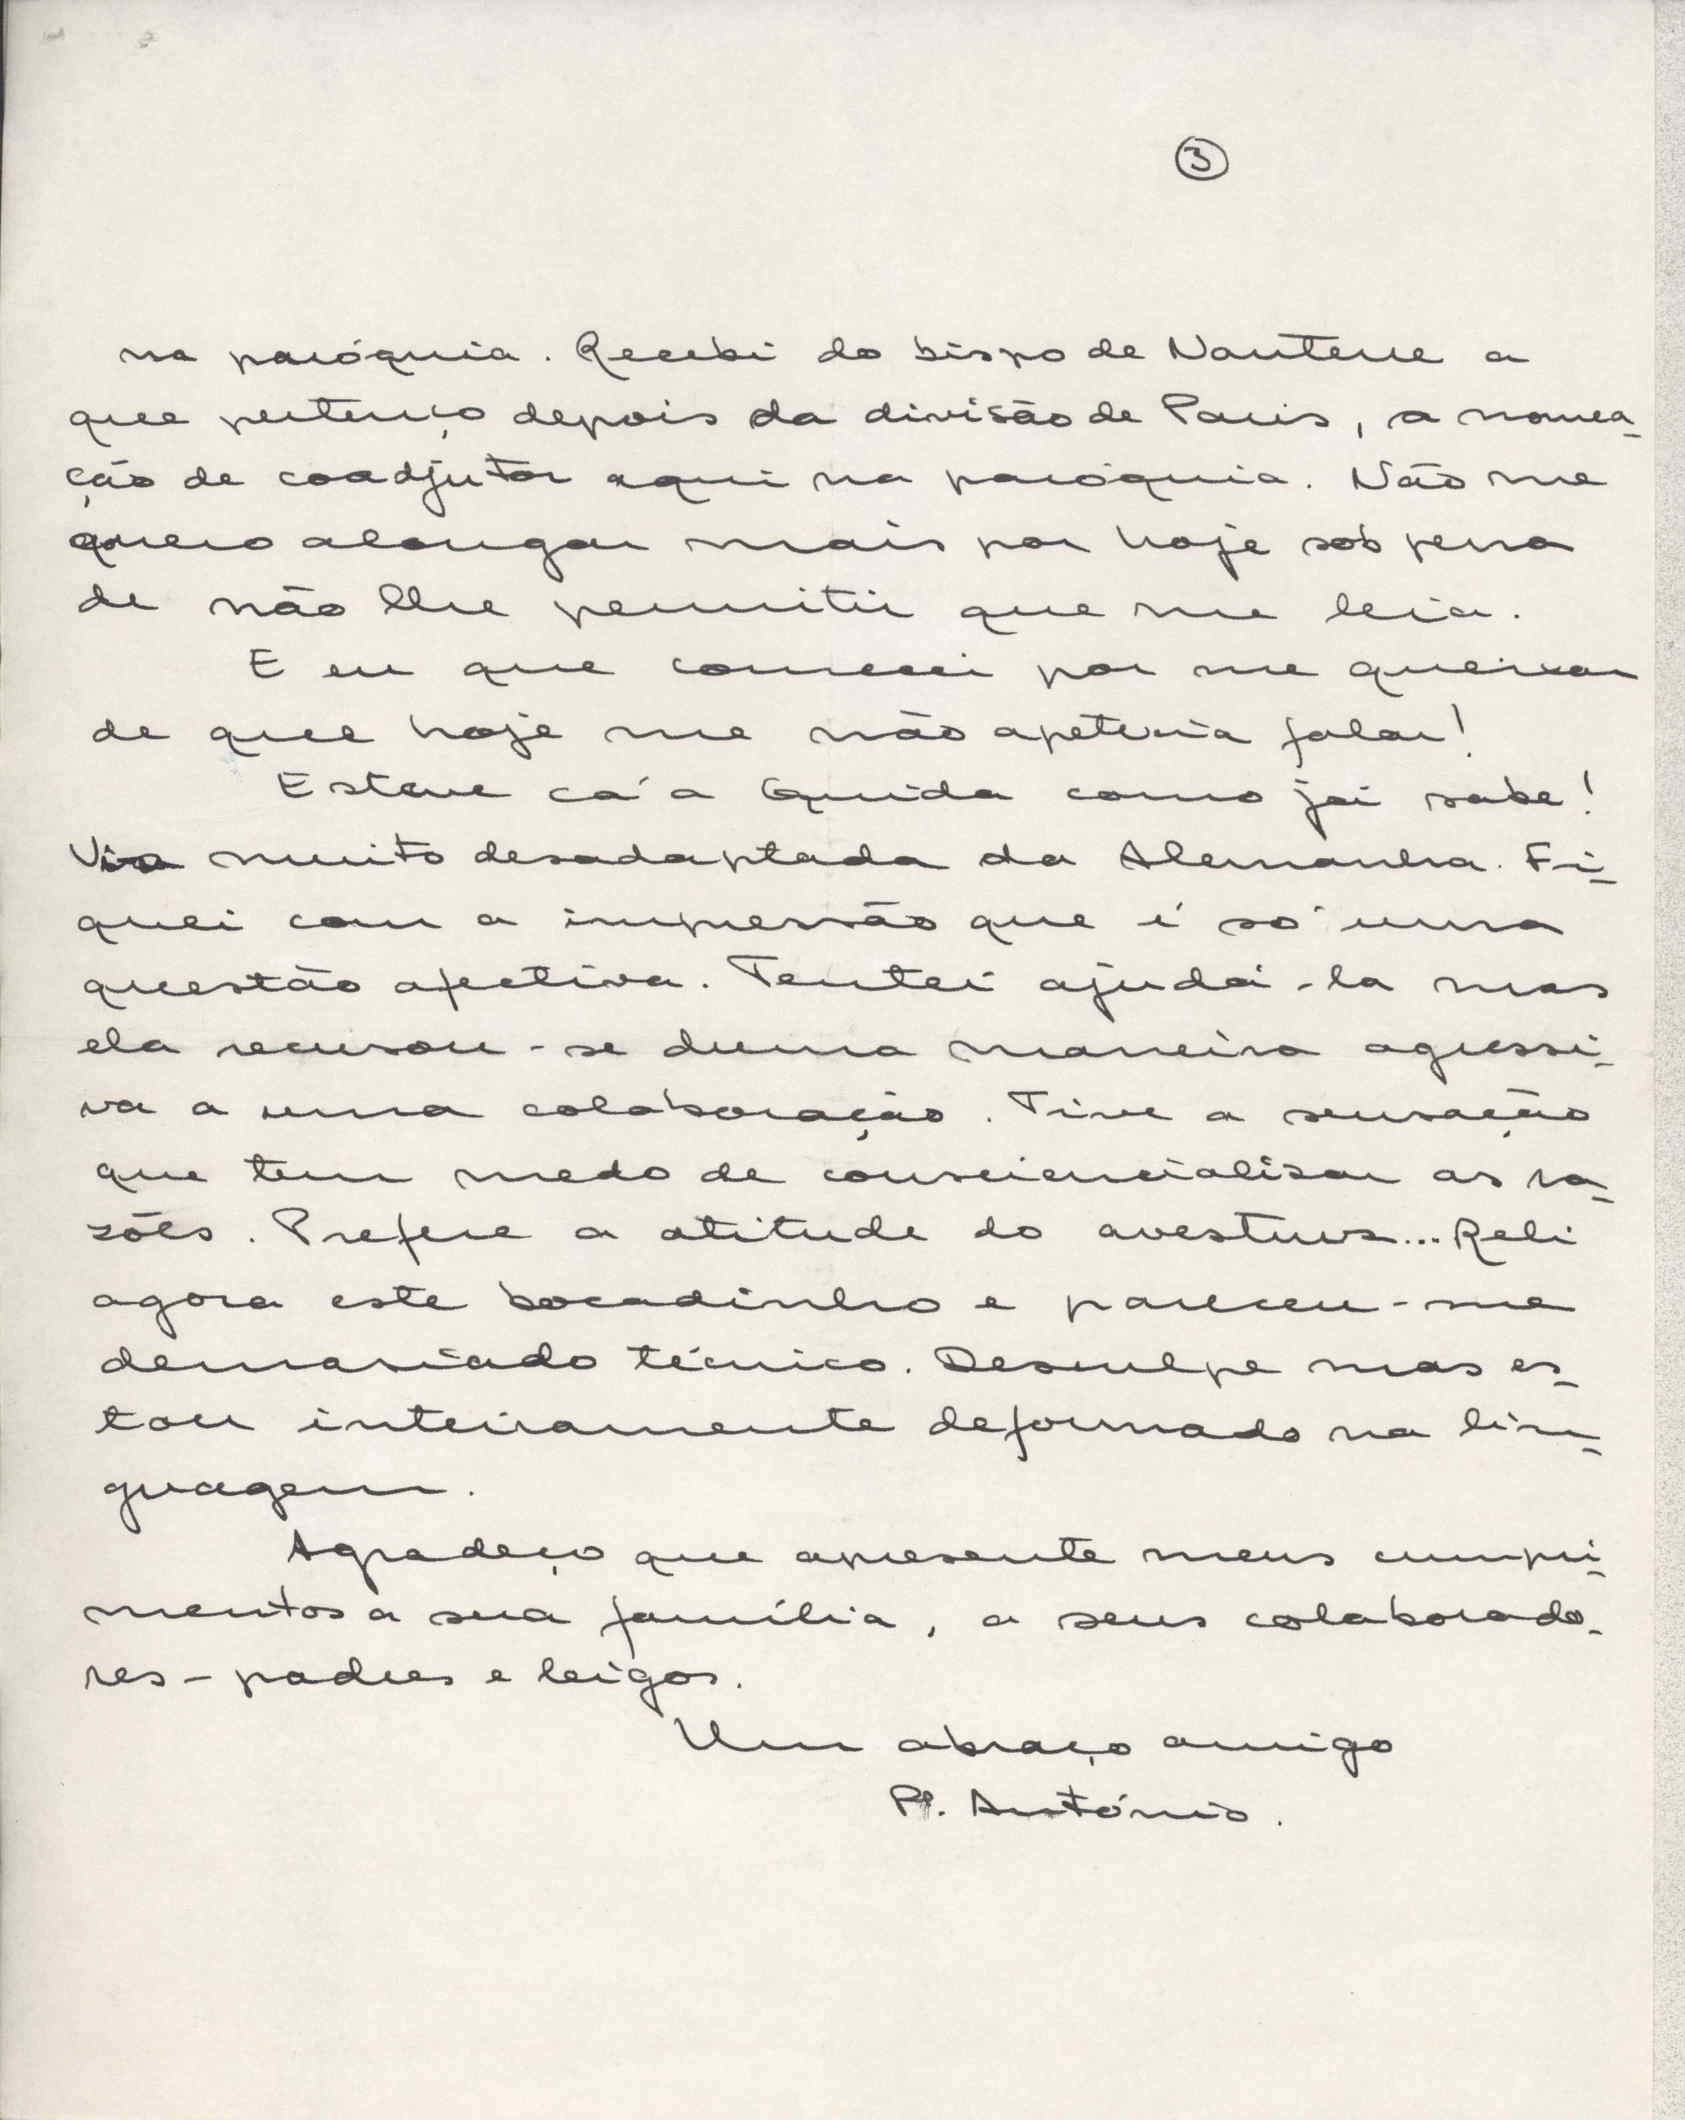 3
na paróquia. Recebi do bispo de Nanterre a
que pertenço depois da divisão de Paris, a nomea-
ção de coadjutor aqui na paróquia. Não me
quero alongar mais por hoje sob pena
de não lhe permitir que me leia.
E eu que comecei por me queixar
de que hoje me não apetecia falar!
Esteve cá a Guida como já sabe!
Vi-a muito desadaptada da Alemanha. Fi-
quei com a impressão que é só uma
questão afectiva. Tentei ajudá-la mas
ela recusou-se duma maneira agressi-
va a uma colaboração. Tive a sensação
que tem medo de consciencialisar as ra-
zões. Prefere a atitude do avestruz... Reli
agora este bocadinho e pareceu-me
demasiado técnico. Desculpe mas es-
tou inteiramente deformado na lin-
guagem.
Agradeço que apresente meus cumpri-
mentos a sua família, a seus colaborado-
res - padres e leigos.
Um abraço amigo
Pe. António.